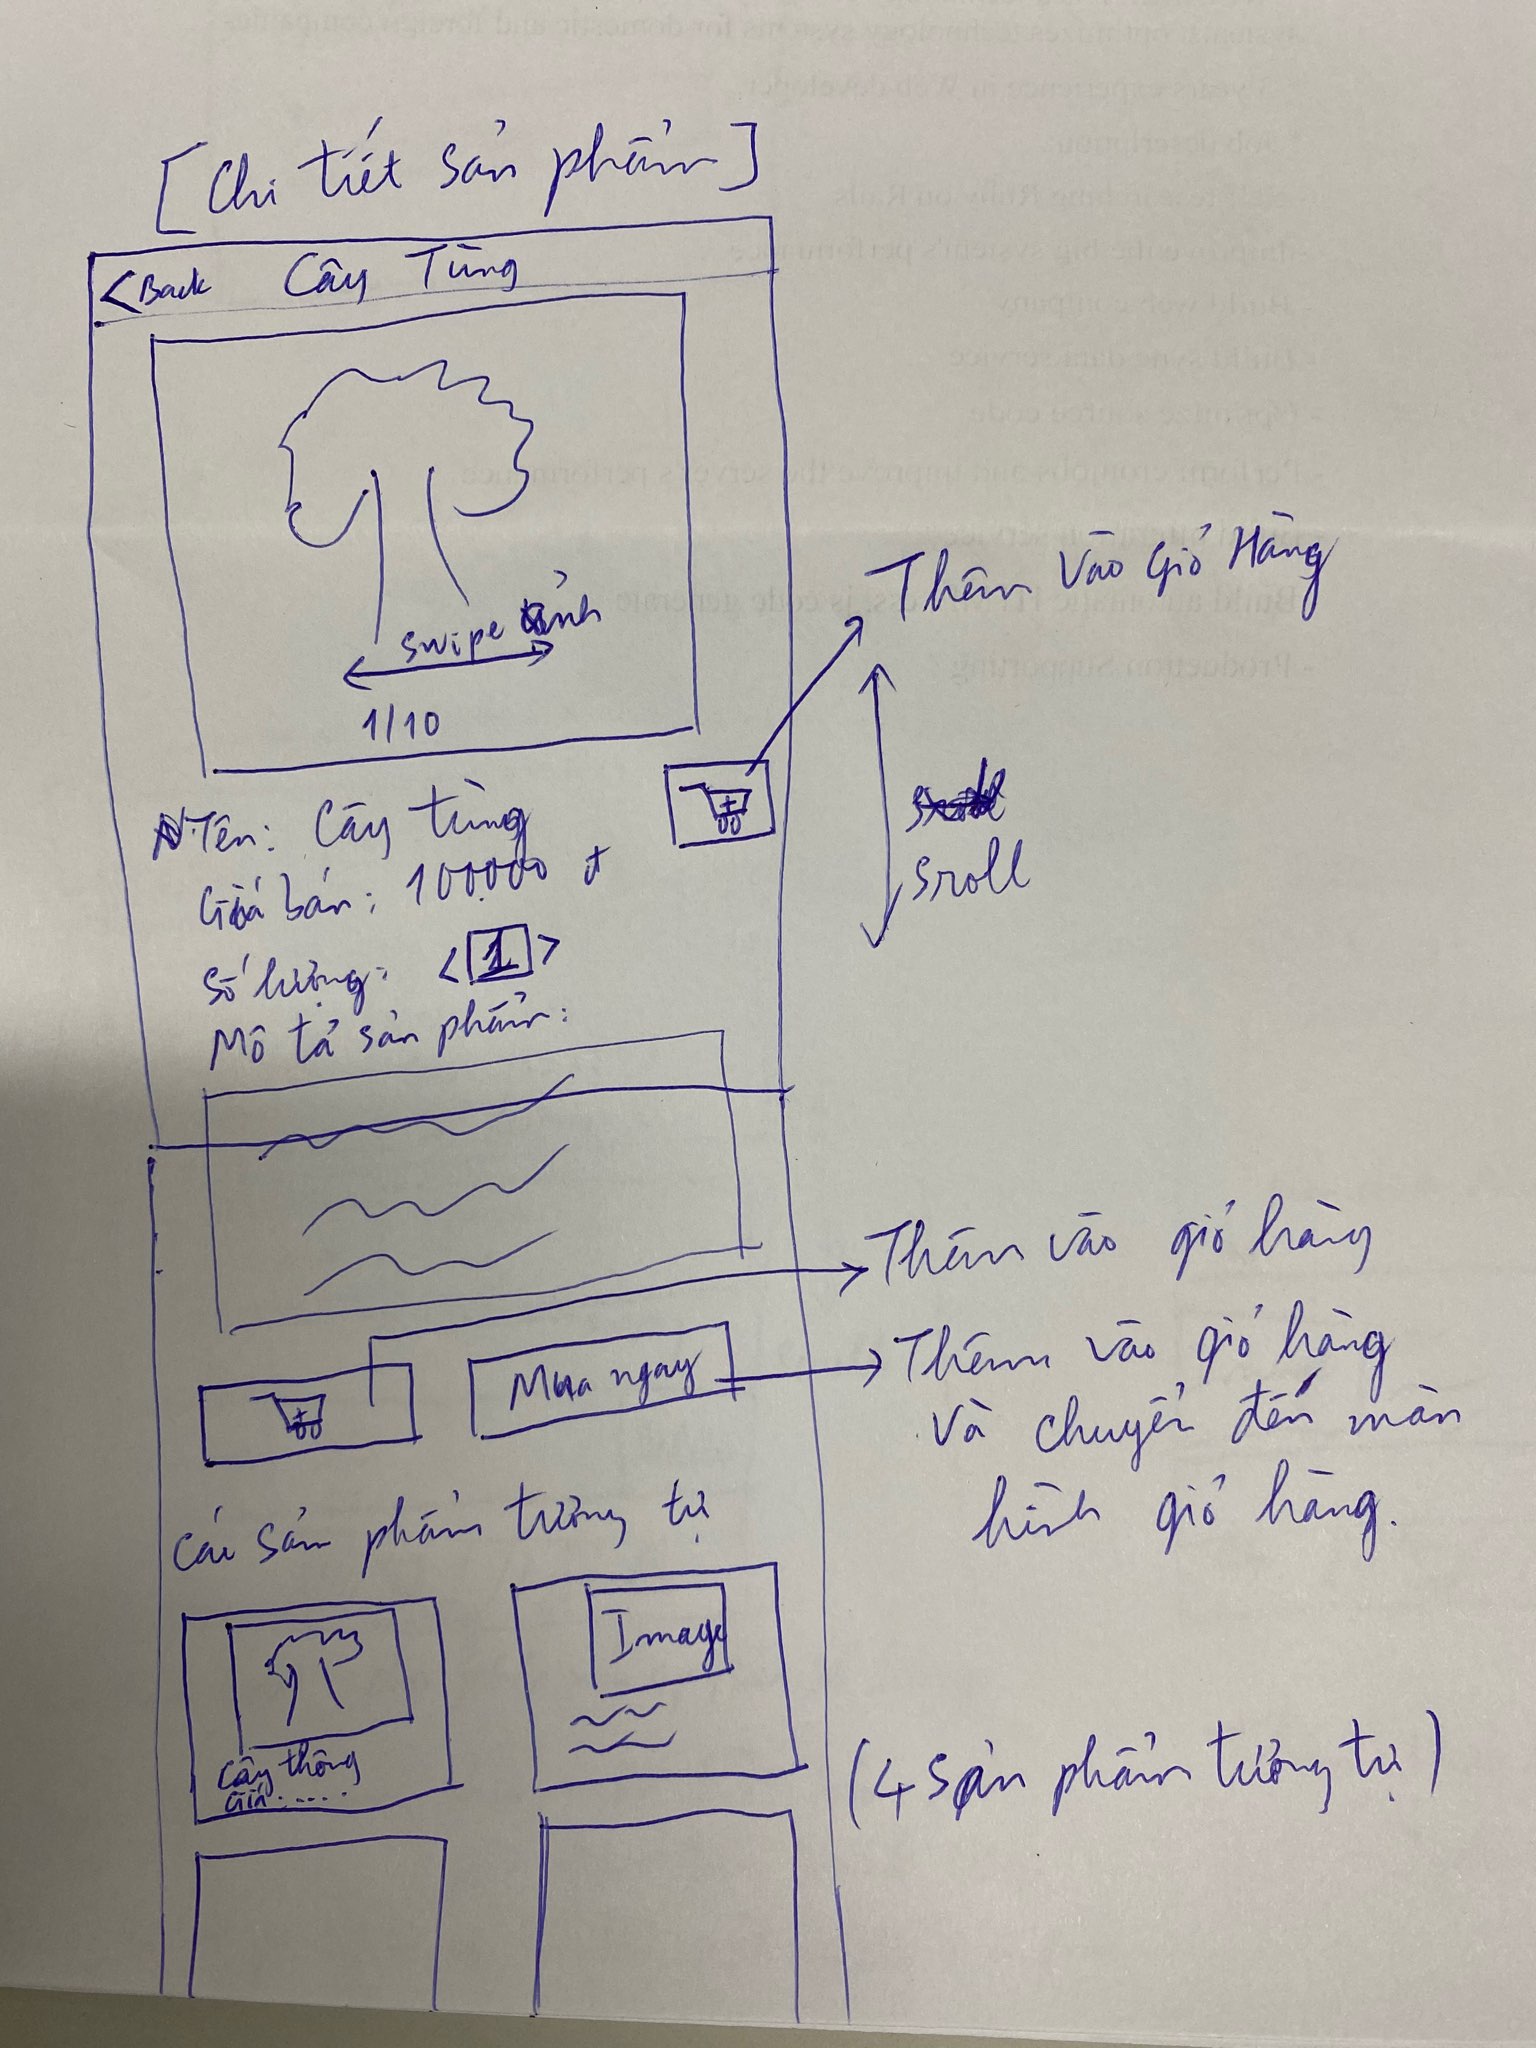 [Chi tiết sản phẩm]
<Back Cây Tùng
swipe ảnh
1/10
Thêm vào giỏ Hàng
Tên: Cây tùng
Giá bán: 100.000 đ
sroll
Số lượng: <1>
Mô tả sản phẩm:
Thêm vào giỏ hàng
Mua ngay
Thêm vào giỏ hàng
và chuyển đến màn
hình giỏ hàng.
Các sản phẩm tương tự
Image
Cây thông
Giá.....
(4 sản phẩm tương tự)